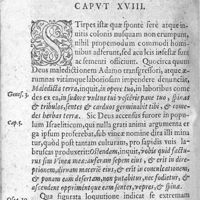 CAPVT XVIII.
Stirpes istæ quæ sponte serè atque in-
uitis colonis nusquam non erumpunt,
nihil propemodum commodi homi-
nibus adferunt, sed aculeis infestæ sunt
ac sementi officiunt. Quocirca quum
Deus maledictionem Adamo transgressori, atque æ-
rumnas vitámque laboriosam impendere denuntians,
Gene. 3. Maledicta terra, inquit, in opere tuo, in laboribus come-
des ex ea, in sudore vultus tui vesceris pane tuo, spinas
& tribulos, sentes & carduos germinabit tibi, & come-
des herbas terræ. Sic Deus accensus furore in popu-
Cap. 5. lum Israeliticum, qui nulla grati animi argumenta er-
ga ipsum proferebat, sub vineæ nomine dira illi mina-
tur, quòd pro fructu tantum culturam, pro sapidis vuis la-
bruscas produceret: Ostendam, inquit, vobis quid factu-
rus sim Vineæ meæ. auferam sepem eius, & erit in dire-
ptionem, diruam maceriam eius, & erit in conculcationem,
& ponam eam desertam, non putabitur, nec fodietur, &
ascendent oppriméntque eam sentes, vepres, & spinæ.
Qua figurata loquutione indicat se extremam